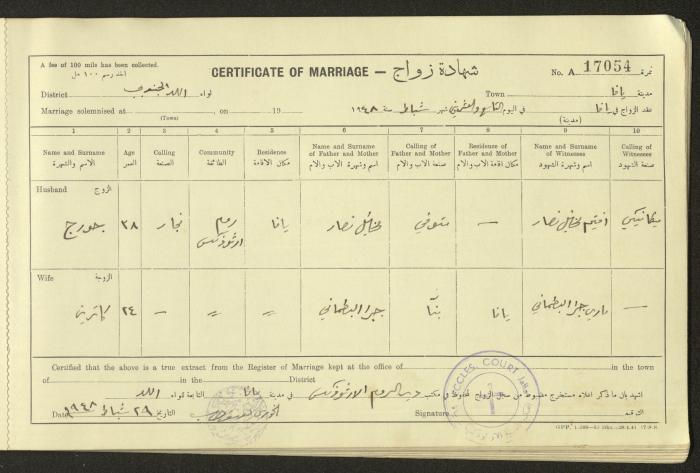 A fee of 100 mils has been collected.
CERTIFICATE OF MARRIAGE — شهادة زواج
No. A 17054 نمرة
District لواء اللد
Town مدينة يافا
Marriage solemnised at , on 19
(Town)
عقد الزواج في يافا في اليوم التاسع والعشرين شهر شباط سنة ١٩٤٨
(مدينة)
1 2 3 4 5 6 7 8 9 10
Name and Surname Age Calling Community Residence Name and Surname of Father and Mother Calling of Father and Mother Residence of Father and Mother Name and Surname of Witnesses Calling of Witnesses
الاسم والشهرة العمر الصنعة الطائفة مكان الاقامة اسم وشهرة الاب والام صنعة الاب والام مكان اقامة الاب والام اسم وشهرة الشهود صنعة الشهود
Husband الزوج
جورج ٣٨ نجار روم ارثوذكس يافا مخائيل نصار متوفي — مخائيل نصار ميكانيكي
Wife الزوجة
كاترين ٢٤ — 〃 〃 جبرا البطماني بنّا يافا ماري جبرا البطماني —
Certified that the above is a true extract from the Register of Marriage kept at the office of in the town
of in the District
اشهد بان ما ذكر اعلاه مستخرج مضبوط من سجل الزواج المحفوظ في مكتب دير الروم الارثوذكس في مدينة يافا التابعة لواء اللد
Date التاريخ ٢٩ شباط ١٩٤٨
Signature التوقيع
ECCLES. COURT